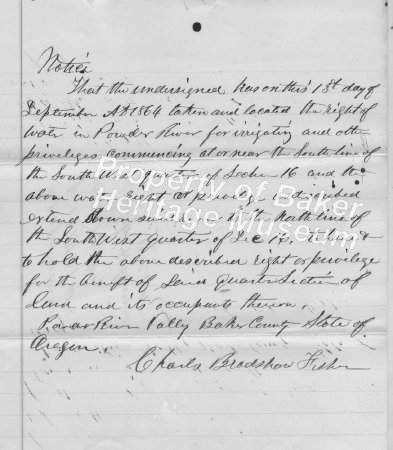 Notice
That the undersigned has on this 13th day of
September AD 1864 taken and located the right of
wate in Powder River for irrigating and othe
priveleges commencing at or near the South line of
the South West quarter of Section 16 and the
above water right or privilege is
extend down said river to the North line of
the South West quarter of Sec 16,
to hold the above described right or privilege
for the benefit of Said Quarter Section of
land and its occupants thereon,
Powder River Vally Baker County State of
Oregon,
Charls Bradshaw Fisher
Property of Baker
Heritage Museum